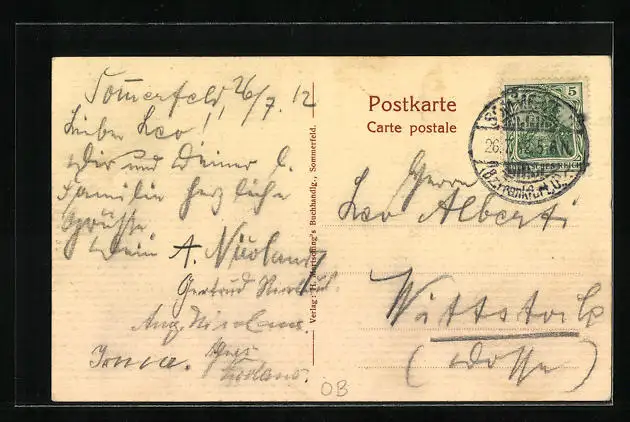 Sommerfeld, 26/7. 12
Lieber Leo!
Dir und Deiner l.
Familie herzliche
Grüsse
Dein A. Nicolaus
Gertrud Nicolaus.
Aug. Nicolaus.
Irma.
Verlag: H. Martsching's Buchhandlg., Sommerfeld.
Postkarte
Carte postale
5
SOMMERFELD
26. 7. 12. 5-6 N.
(Bz. Frankfurt, O.)
DEUTSCHES REICH
Herrn
Leo Alberti
Wittstock
(Dosse)
OB